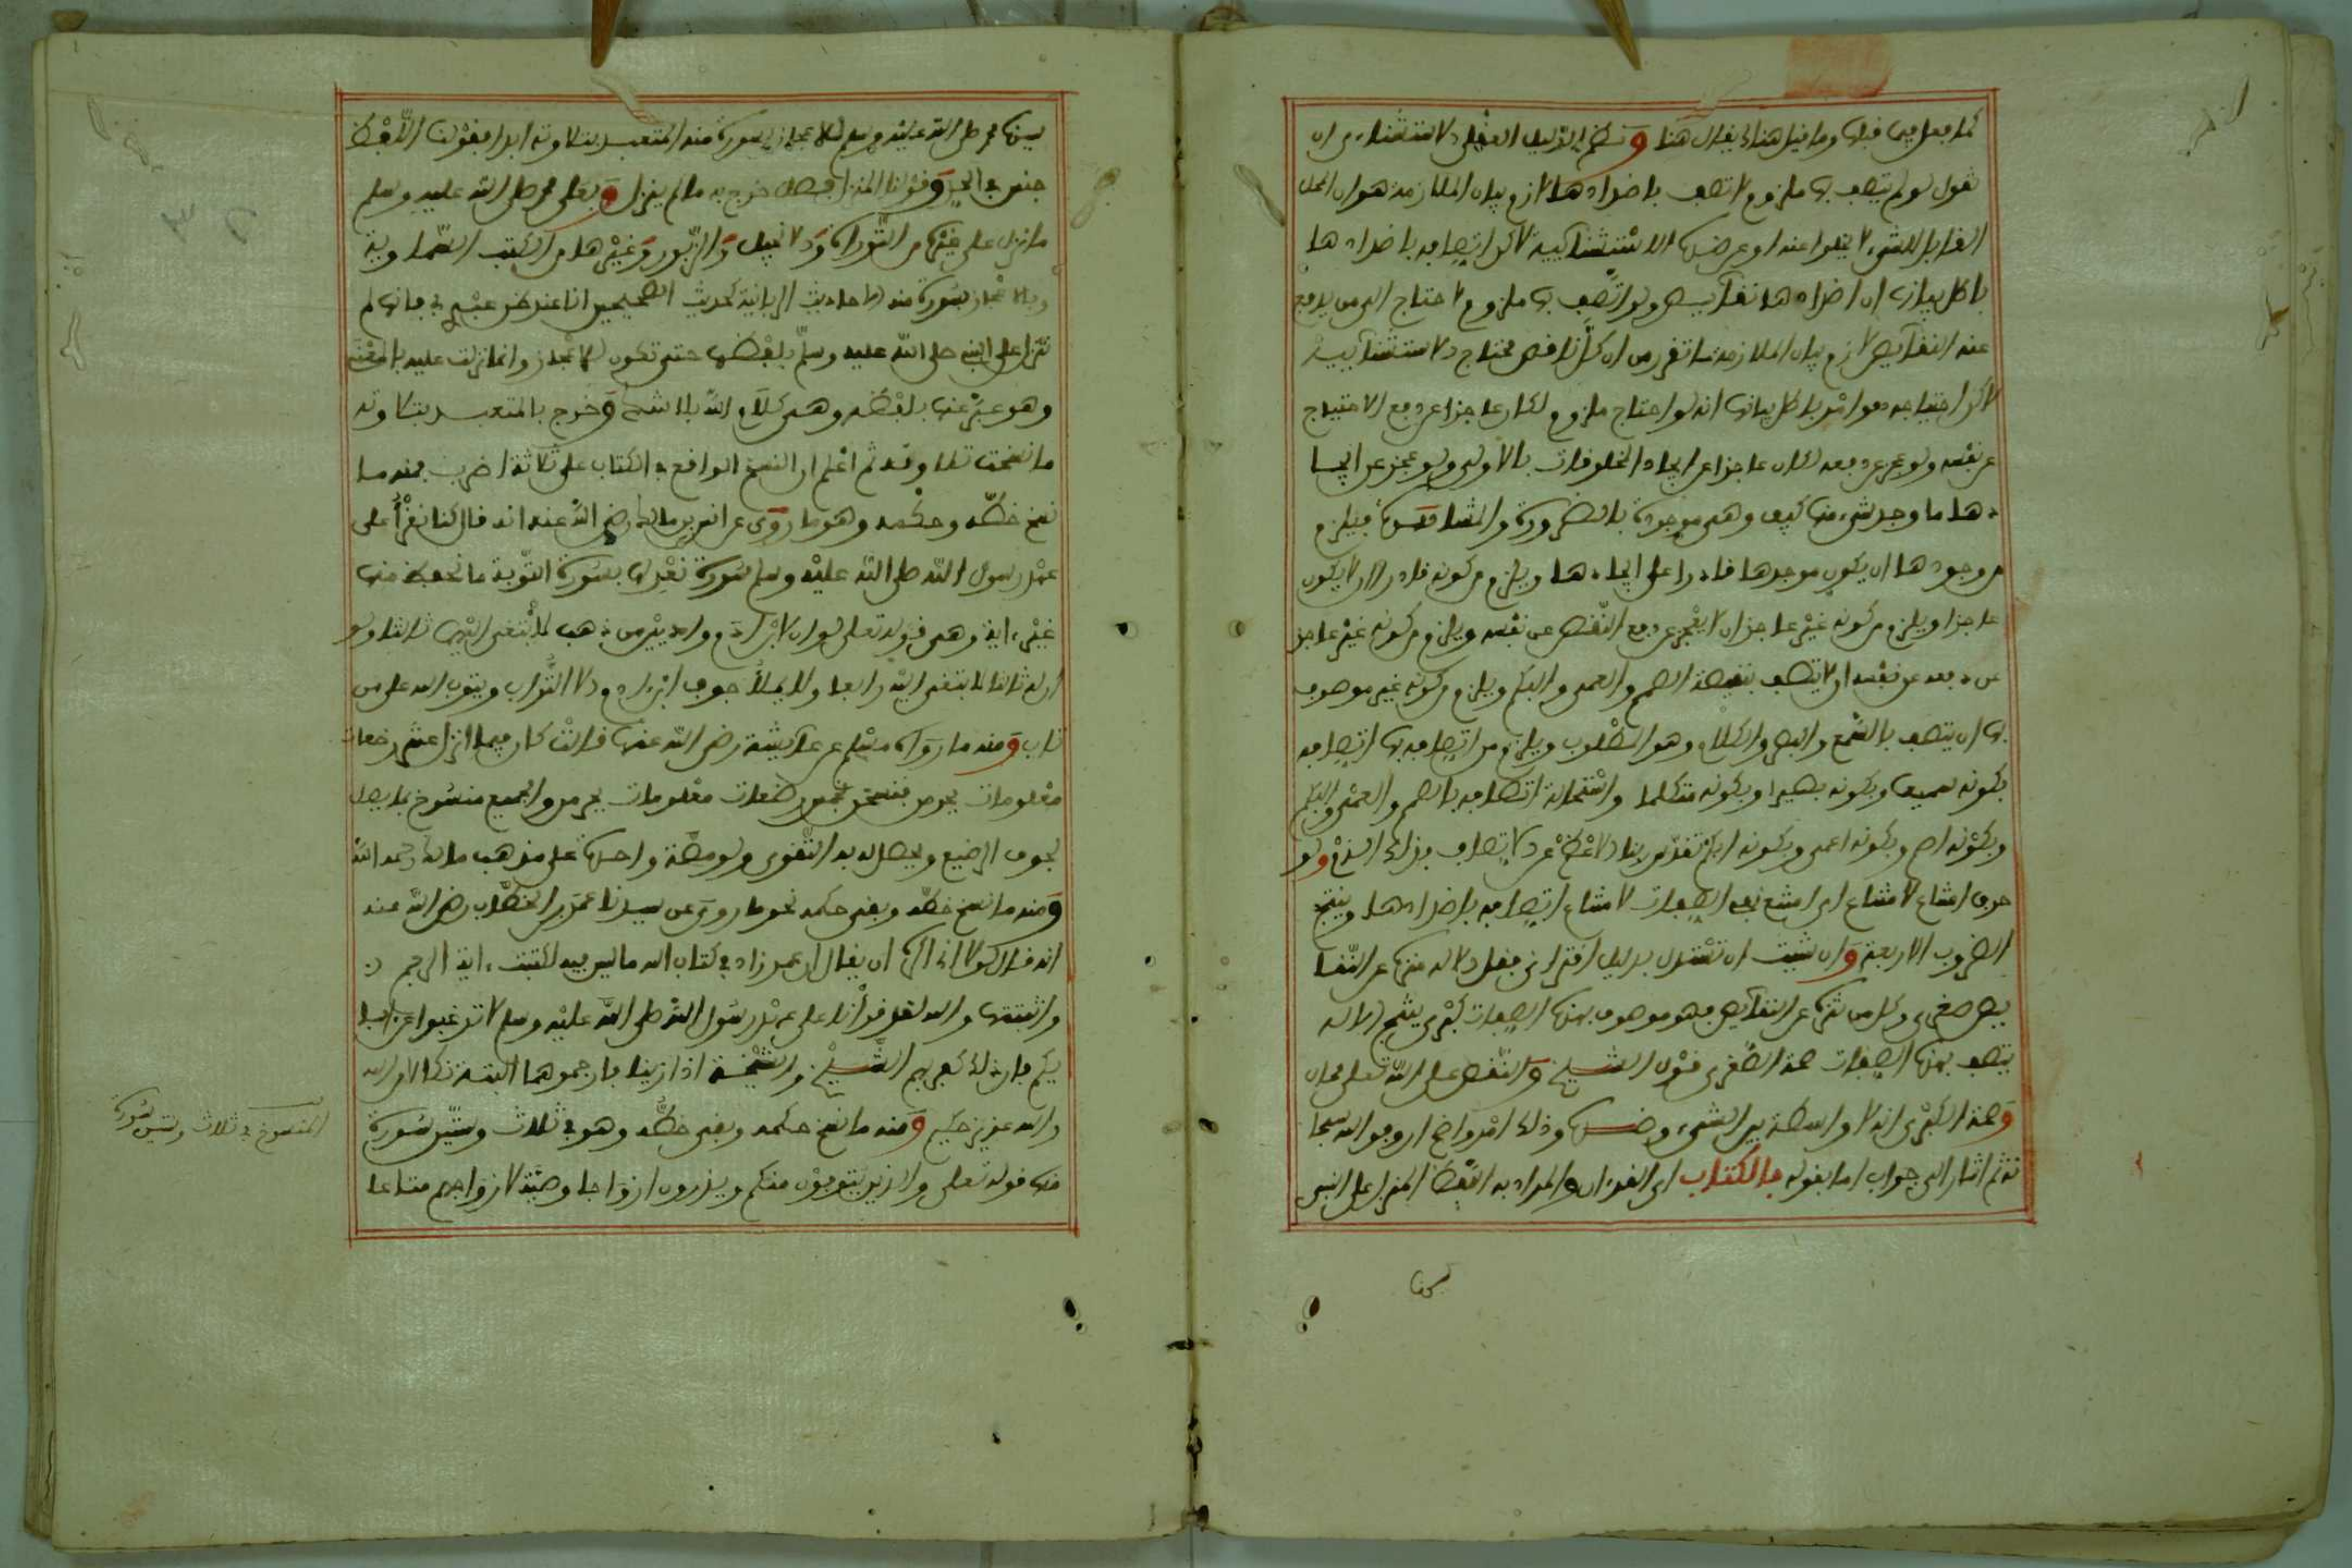 كما فعل فيما قبلها وما قيل هنا يقال هنا ونظم الدليل العقلي الاستثنائي ان
تقول لو لم يتصف بها ملزوم لاتصف باضدادها لازم بيان الملازمة هو ان المحل
القابل للشيء لا يخلوا عنه او عن ضده الاستثنائية لاكن اتصافه باضدادها
باطل بيانها ان اضدادها نقائص ولو اتصف بها ملزوم لاحتاج الى من يدفع
عنه النقائص لازم بيان الملازمة ما تقرر من ان كل ناقص محتاج الاستثنائية
لاكن احتياجه باطل بيانها انه لو احتاج ملزوم لكان عاجزا عن دفع الاحتياج
عن نفسه ولو عجز عن دفعه لكان عاجزا عن ايجاد المخلوقات بالاولى ولو عجز عن ايجا
دها ما وجد شيء منها كيف وهي موجودة بالضرورة والمشاهدة فيلزم
من وجودها ان يكون موجدها قادرا على ايجادها ويلزم من كونه قادرا ان لا يكون
عاجزا ويلزم من كونه غير عاجز ان لا يعجز عن دفع النقص عن نفسه ويلزم من كونه غير عاجز
عن دفعه عن نفسه ان لا يتصف بنقيصة الصمم والعمى والبكم ويلزم من كونه غير موصوف
بها ان يتصف بالسمع والبصر والكلام وهو المطلوب ويلزم من اتصافه بها اتصافه
بكونه سميعا وبكونه بصيرا وبكونه متكلما واستحالة اتصافه بالصمم والعمى والبكم
وبكونه اصم وبكونه اعمى وبكونه ابكم تقدس ربنا الاعظم عن الاتصاف بذلك الذم ولو
حرف امتناع لامتناع اي امتنع نفي الصفات لامتناع اتصافه باضدادها وينتج
الضروب الاربعة وان شئت ان تستدل بدليل اقتراني فقل الاله منزه عن النقا
يص صغرى وكل من تنزه عن النقائص فهو موصوف بهذه الصفات كبرى ينتج الاله
يتصف بهذه الصفات صحة الصغرى قول الشيخ والنقص على الله تعلى محال
وصحة الكبرى انه لا واسطة بين الشيء وضده وذلك امر واضح
ثم اشار الى جواب اما بقوله فالكتاب اي القرءان والمراد به اللفظ المنزل على النبي
سيدنا محمد صلى الله عليه وسلم للاعجاز بسورة منه المتعبد بتلاوته ابدا فقولنا اللفظ
جنس في الحد وقولنا المنزل فصل خرج به ما لم ينزل وبعلى محمد صلى الله عليه وسلم
ما نزل على غيره من التوراة والانجيل والزبور وغيرها من الكتب السماوية
وبالاعجاز بسورة منه الاحاديث الربانية كحديث الصحيحين انا عند ظن عبدي بي فانها لم
تنزل على النبي صلى الله عليه وسلم بلفظها حتى تكون للاعجاز وانما نزلت عليه بالمعنى
وهو عبر عنها بلفظه وهي كلام الله بلا شك وخرج بالمتعبد بتلاوته
ما نسخت تلاوته ثم اعلم ان النسخ الواقع في الكتاب على ثلاثة اضرب فمنه ما
نسخ خطه وحكمه وهو ما روي عن انس بن مالك رضي الله عنه انه قال كنا نقرأ على
عهد رسول الله صلى الله عليه وسلم سورة نعدلها بسورة التوبة ما نحفظ منها
غير ءاية وهي قوله تعلى لو ان لابن ءادم واديين من ذهب لابتغى اليهما ثالثا ولو
ان له ثالثا لابتغى اليه رابعا ولا يملأ جوف ابن ءادم الا التراب ويتوب الله على من
تاب ومنه ما رواه مسلم عن عائشة رضي الله عنها قالت كان فيما انزل عشر رضعات
معلومات يحرمن فنسخن بخمس رضعات معلومات يحرمن والجميع منسوخ بما يصل
لجوف الرضيع ويحصل له به التقوى ولو مصة واحدة على مذهب مالك رحمه الله
ومنه ما نسخ خطه وبقي حكمه نحو ما روي عن سيدنا عمر بن الخطاب رضي الله عنه
انه قال لولا ان يقال ان عمر زاد في كتاب الله ما ليس فيه لكتبت ءاية الرجم
واثبتها والله لقد قرأنا على عهد رسول الله صلى الله عليه وسلم لا ترغبوا عن ءابا
يكم فان ذلك كفر بكم الشيخ والشيخة اذا زنيا فارجموهما البتة نكالا من الله
والله عزيز حكيم ومنه ما نسخ حكمه وبقي خطه وهو في ثلاث وستين سورة
منها قوله تعلى والذين يتوفون منكم ويذرون ازواجا وصية لازواجهم متاعا
المنسوخ في ثلاث وستين سورة